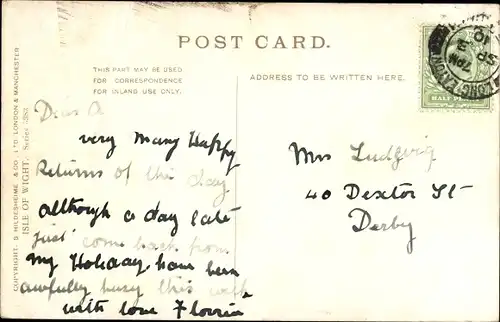 POST CARD.
THIS PART MAY BE USED
FOR CORRESPONDENCE
FOR INLAND USE ONLY.
ADDRESS TO BE WRITTEN HERE.
COPYRIGHT. S. HILDESHEIME & CO., LTD. LONDON & MANCHESTER
ISLE OF WIGHT.
LONG
HALF
Dear A
very Many Happy
Returns of the day
although a day late
just come back from
My Holiday have been
awfully busy this
with love Florrie
Mrs Ludgvig
40 Dexter St
Derby